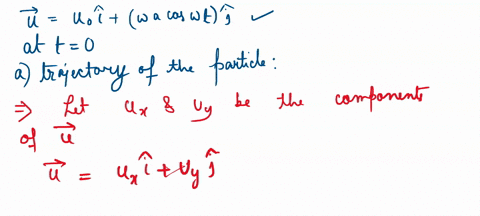 u⃗ = u₀ î + (ωa cos ωt) ĵ ✓
at t = 0
a) trajectory of the particle:
⇒ Let uₓ & υᵧ be the components
of u⃗
u⃗ = uₓ î + υᵧ ĵ